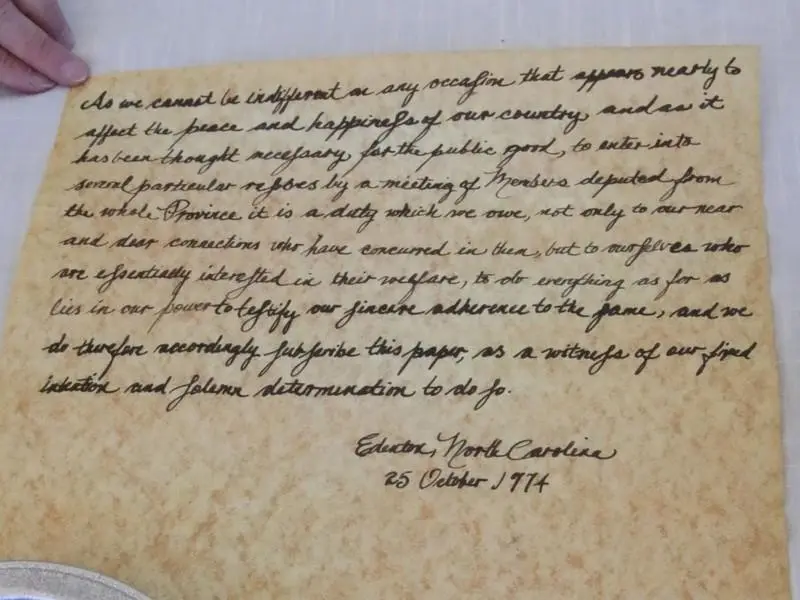 As we cannot be indifferent on any occasion that appears nearly to
affect the peace and happiness of our country, and as it
has been thought necessary for the public good, to enter into
several particular resolves by a meeting of Members deputed from
the whole Province it is a duty which we owe, not only to our near
and dear connections who have concurred in them, but to ourselves who
are essentially interested in their welfare, to do everything as far as
lies in our power to testify our sincere adherence to the same, and we
do therefore accordingly subscribe this paper, as a witness of our fixed
intention and solemn determination to do so.
Edenton, North Carolina
25 October 1774